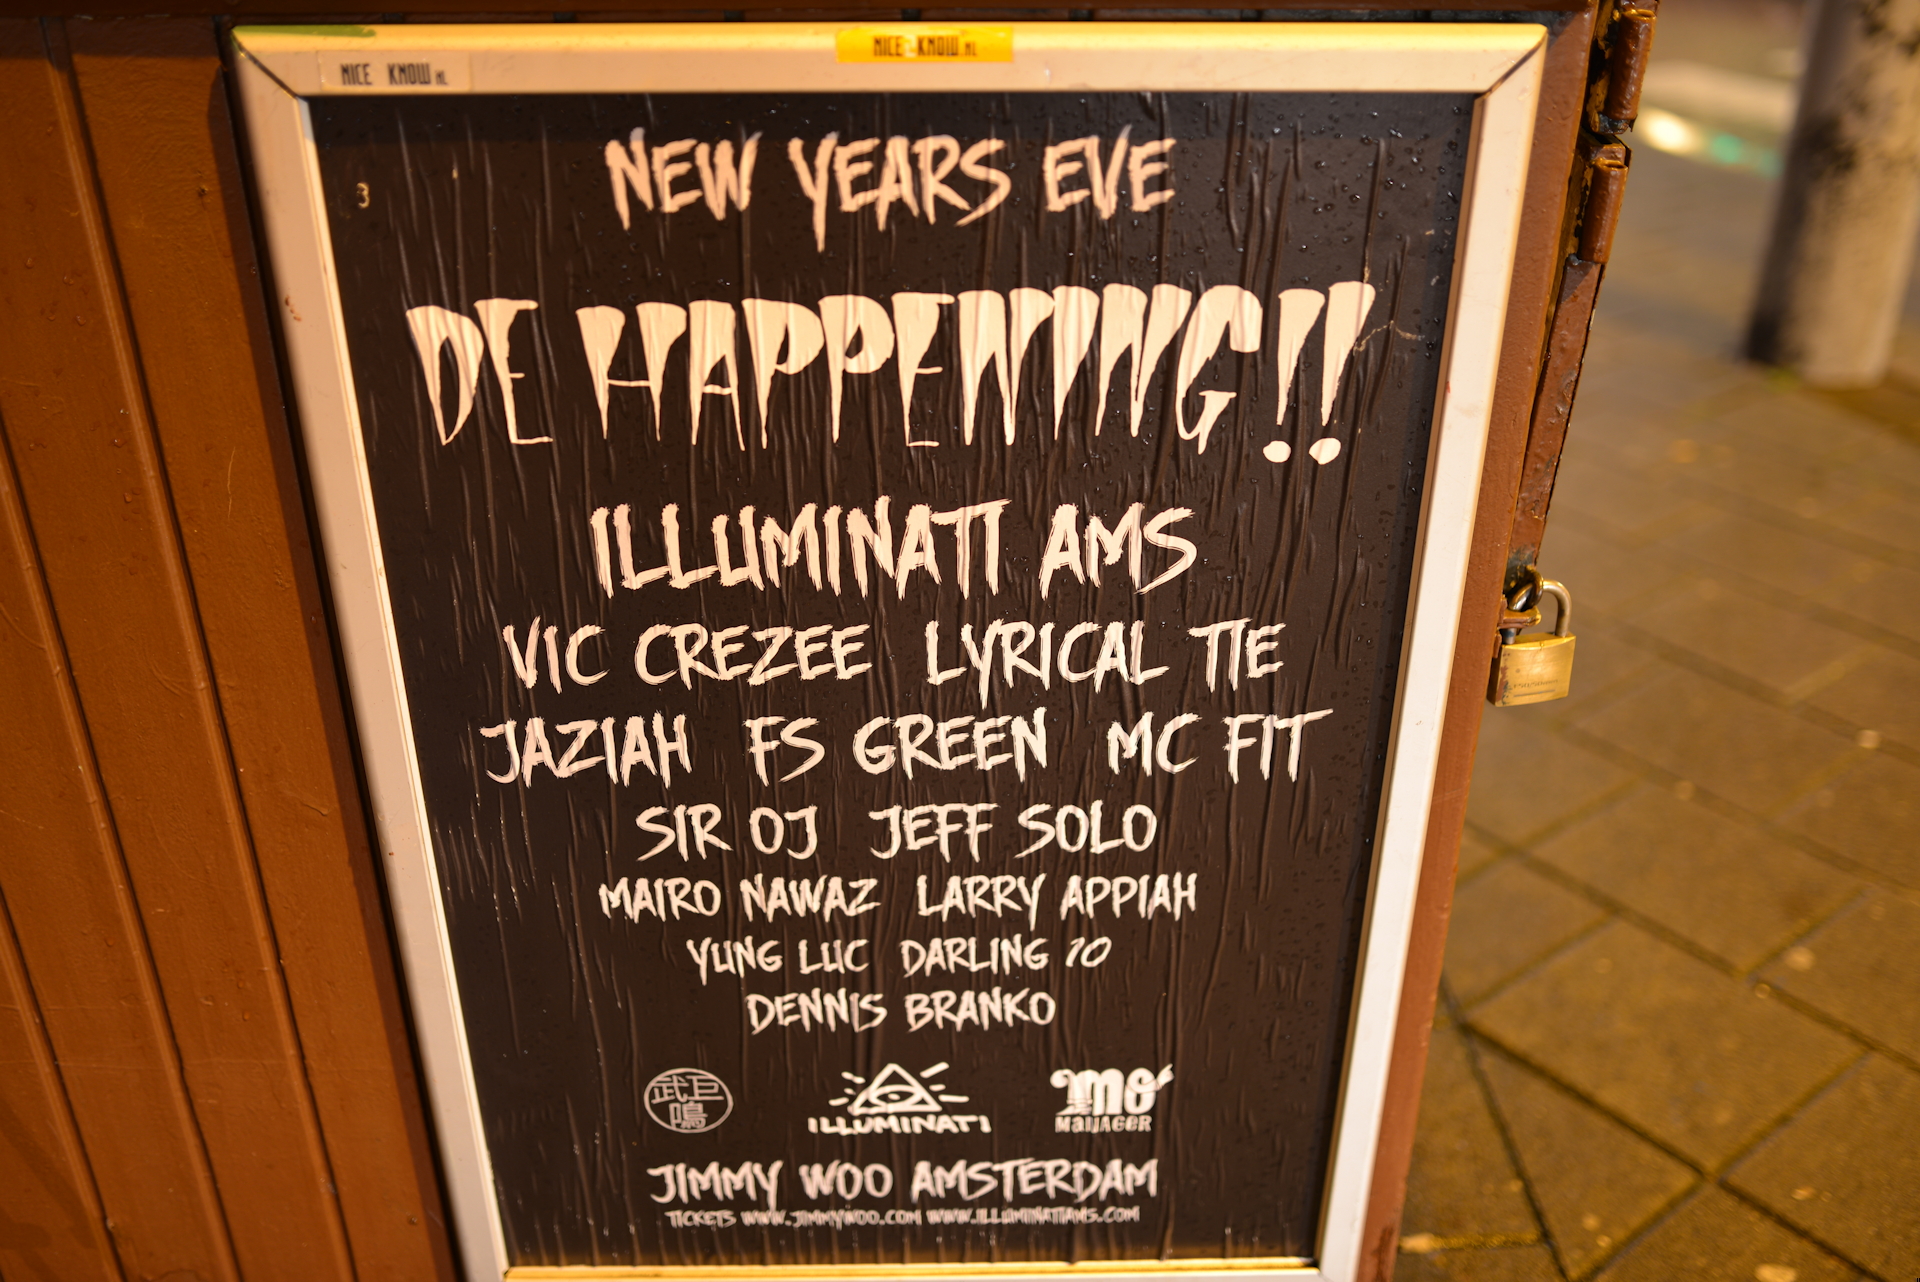 NICE KNOW.NL
NICE KNOW.NL
NEW YEARS EVE
DE HAPPENING!!
ILLUMINATI AMS
VIC CREZEE LYRICAL TIE
JAZIAH FS GREEN MC FIT
SIR OJ JEFF SOLO
MAIRO NAWAZ LARRY APPIAH
YUNG LUC DARLING 10
DENNIS BRANKO
武巨
鳴
ILLUMINATI
MO
MANAGER
JIMMY WOO AMSTERDAM
TICKETS WWW.JIMMYWOO.COM WWW.ILLUMINATIAMS.COM